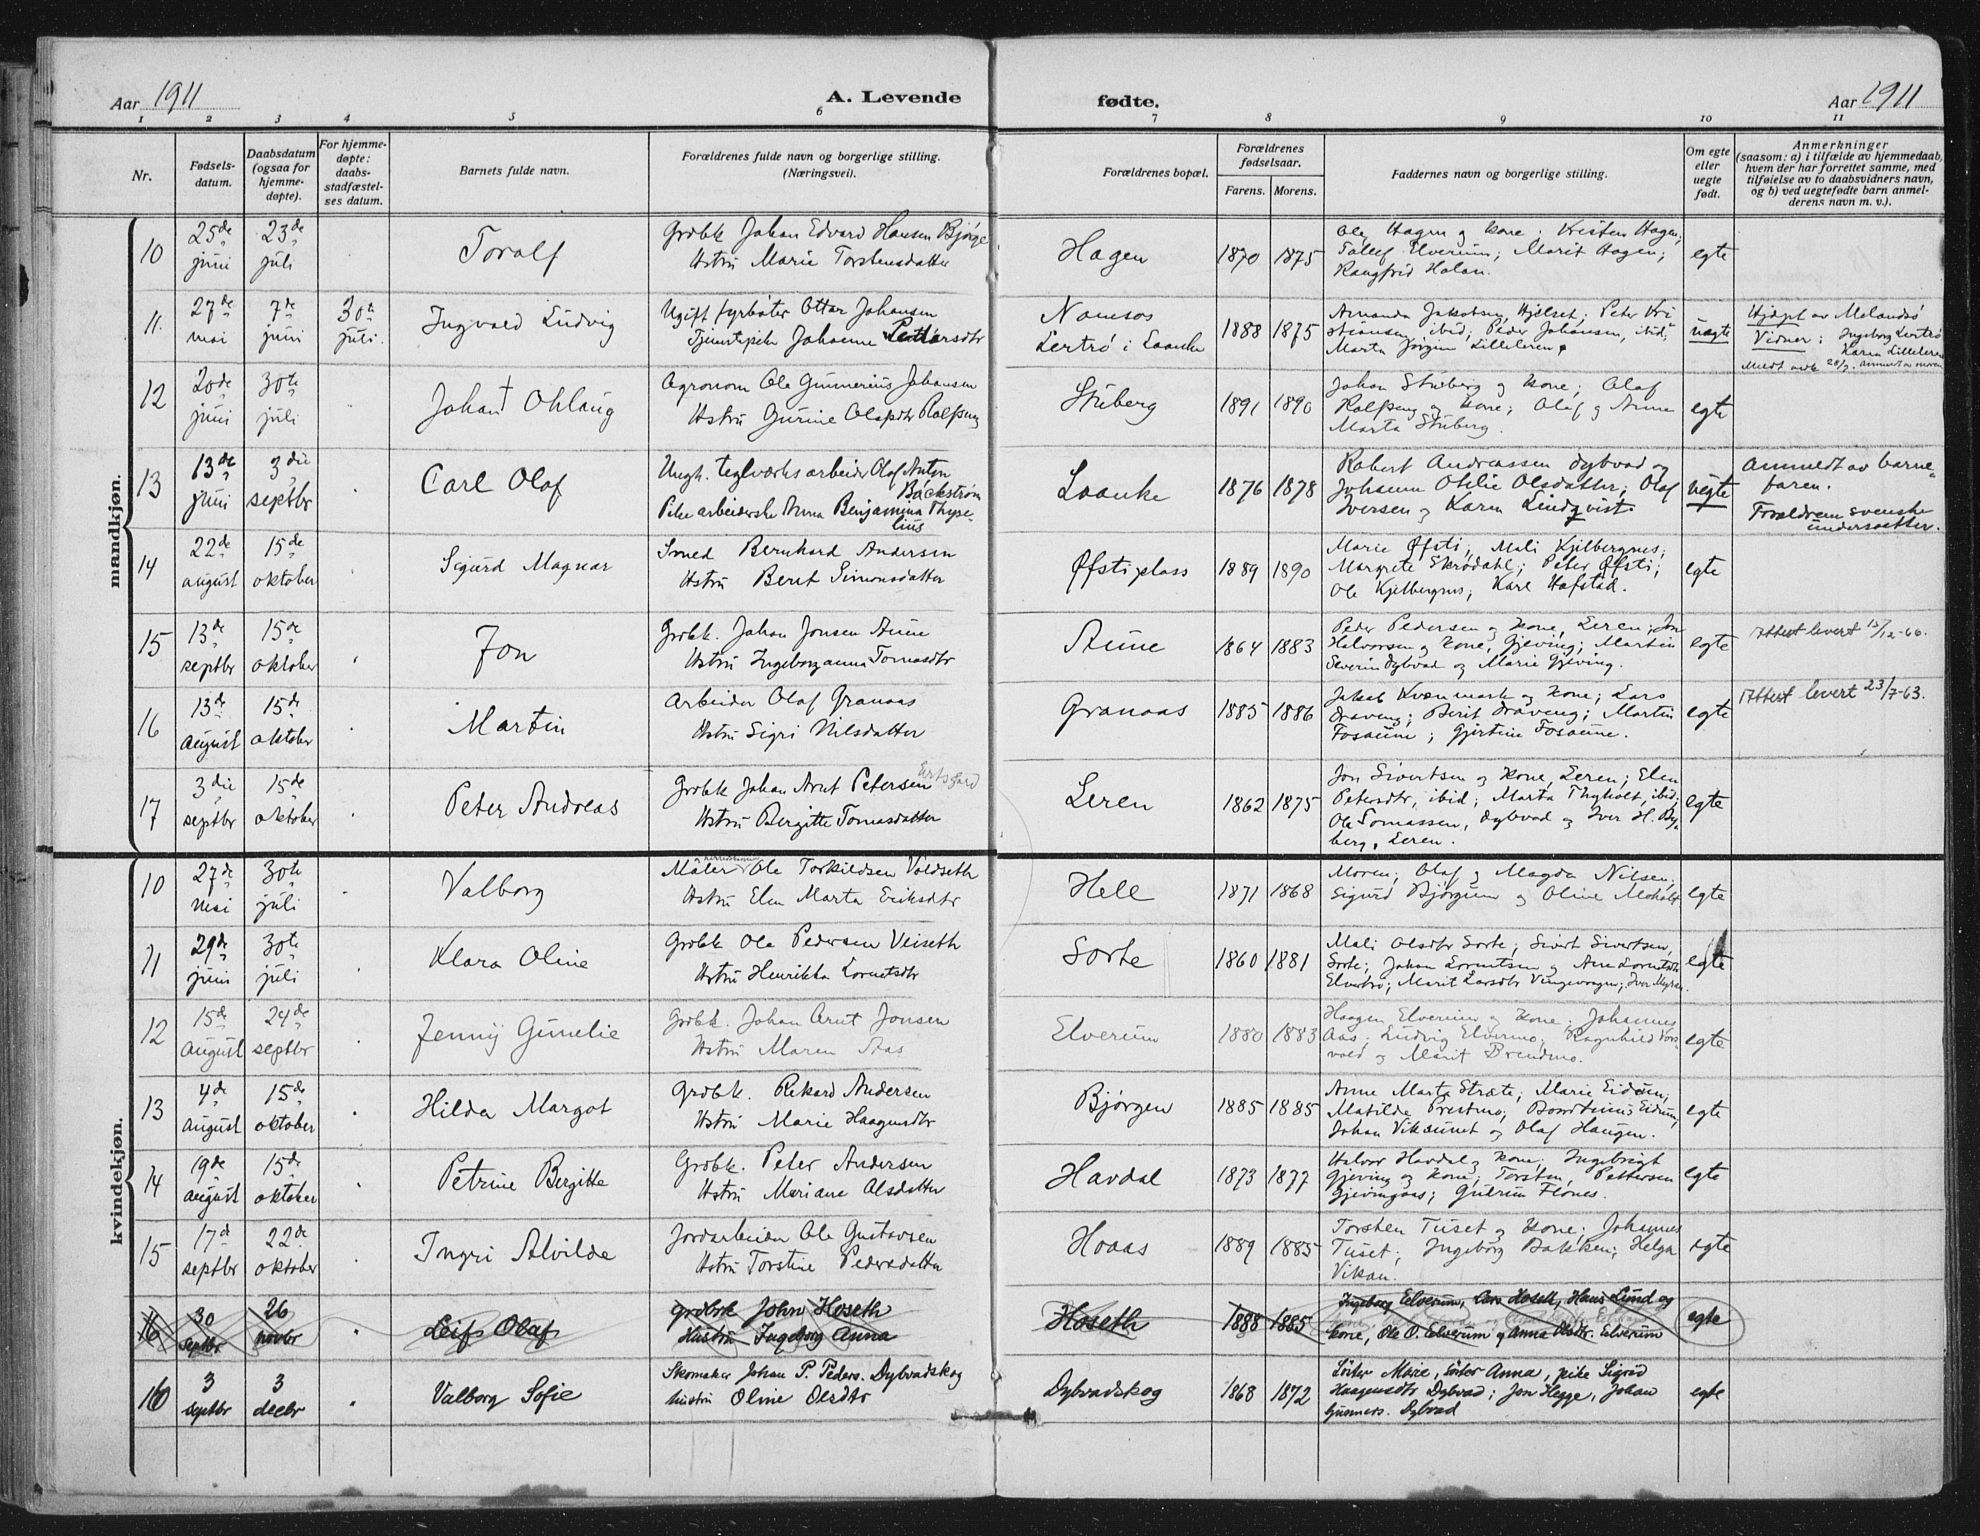 Aar 1911
A. Levende
fødte.
Aar 1911
1 2 3 4 5 6 7 8 9 10 11
Nr.
Fødsels-
datum.
Daabsdatum
(ogsaa for
hjemme-
døpte).
For hjemme-
døpte:
daabs-
stadfæstel-
ses datum.
Barnets fulde navn.
Forældrenes fulde navn og borgerlige stilling.
(Næringsvei).
Forældrenes bopæl.
Forældrenes
fødselsaar.
Farens. Morens.
Faddernes navn og borgerlige stilling.
Om egte
eller
uegte
født.
Anmerkninger
(saasom: a) i tilfælde av hjemmedaab,
hvem der har forrettet samme, med
tilføielse av to daabsvidners navn,
og b) ved uegtefødt barn anmel-
derens navn m. v.).
mandkjøn.
10 25de juni 23de juli Toralf
Grdbk Johan Edvard Hansen Bjørge
Hstru Marie Torstensdatter
Hagen 1870 1875
Ole Hagen og kone; Kristen Hagen;
Tollef Elverum; Marit Hagen;
Rangfrid Holan.
egte
11. 27de mai 7de juni 30te juli. Ingvald Ludvig
Ugift fyrbøter Ottar Johansen
Tjenestepike Johanne Pettersdtr
Namsos
Lertrø i Laanke 1888 1875
Amanda Jakobsen, Hjelset; Peter Kri
stiansen, ibid; Peder Johansen, ibid;
Marta Jørgine Lilleleren.
uegte
Hjdøpt av
Vidner: Ingeborg Lertrø
Karen Lilleleren
12 20de juni 30te juli Johan Ohlaug
Agronom Ole Gunnerius Johansen
Hstru Gurine Olafsdtr Rolfseng
Stuberg 1891 1890
Johan Stuberg og kone; Olaf
Rolfseng og kone; Olaf og Anne
Marta Stuberg.
egte
13 13de juni 3die septbr Carl Olaf
Ungk. teglverksarbeider Olaf Anton
Bäckström
Pike arbeiderske Anna Benjamina Thyse-
lius
Laanke 1876 1878
Robert Andreassen Dybvad og
Johanna Otilie Olsdatter; Olaf
Iversen og Karen Lindqvist.
uegte
Anmeldt av barne-
faren.
Forældrene svenske
undersaatter.
14 22de august 15de oktober Sigurd Magnar
Smed Bernhard Andersen
Hstru Berit Simonsdatter
Øfstiplass 1889 1890
Marie Øfsti; Mali Kjelbergnes;
Margrete Skrødahl; Peter Øfsti;
Ole Kjelbergnes; Karl Hofstad.
egte
15 13de septbr 15de oktober Jon
Grdbk. Johan Jonsen Aune
Hstru Ingeborganna Tomasdtr
Aune 1864 1883
Peder Pedersen og kone, Leren; Jon
Halvorsen og kone, Gjeving; Martin
Severin Dybvad og Marie Gjeving.
egte
Attest levert 15/12-66.
16 13de august 15de oktober Martin
Arbeider Olaf Granaas
Hstru Sigri Nilsdatter
Granaas 1885 1886
Jakob Kvenmark og kone; Lars
Draveng; Berit Draveng; Martin
Fosaune; Gjertine Fosaune.
egte
Attest levert 23/7-63.
17 3die septbr 15de oktober Peter Andreas
Grdbk Johan Arnt Petersen Ertsgard
Hstru Bergitte Tomasdatter
Leren 1862 1875
Jon Sivertsen og kone, Leren; Elen
Petersdtr, ibid; Marta Thyholt, ibid;
Ole Tomassen, Dybvad og Iver H. By-
berg, Leren.
egte
kvindekjøn.
10 27de mai 30te juli Valborg
Maler Ole Torkildsen Voldseth
Hstru Elen Marta Eriksdtr
Hell 1871 1868
Moren; Olaf og Magda Nilsen;
Sigurd Bjørgum og Oline Moholt
egte
11 29de juni 30te juli Klara Oline
Grdbk Ole Pedersen Veiseth
Hstru Henrikka Lorntsdtr
Sorte 1860 1881
Mali Olsdtr Sorte; Sivert Sivertsen,
Sorte; Johan Lorntsen og Ane Lorntsdtr
Elvertrø; Marit Larsdtr Vingevragen; Iver Myran.
egte
12 15de august 24de septbr Jenny Gunelie
Grdbk. Johan Arnt Jonsen
Hstru Maren Aas
Elverum 1880 1883
Haagen Elverum og kone; Johannes
Aas; Ludvig Elvermo; Ragnhild Tors-
vold og Marit Brendmo.
egte
13 4de august 15de oktober Hilda Margot
Grdbk. Rikard Andersen
Hstru Marie Haagensdtr
Bjørgen 1885 1885
Anne Marta Stræte; Marie Eidum;
Matilde Prestmo; Eidum;
Johan Vikaunet og Olaf Haugen.
egte
14 19de august 15de oktober Petrine Bergitte
Grdbk. Peter Andersen
Hstru Meriane Olsdatter
Havdal 1873 1877
Halvor Havdal og kone; Ingebrigt
Gjeving og kone; Torsten Pettersen
Gjevingaas; Gudrun Flones.
egte
15 17de septbr 22de oktober Ingri Alvilde
Jordarbeider Ole Gustavsen
Hstru Torstine Pedersdatter
Hoaas 1889 1885
Torsten Tuset og kone; Johannes
Tuset; Ingeborg Bakken; Helga
Vikan.
egte
16 30 septbr 26 novbr Leif Olaf
Grdbrk John Hoseth
Hustru Ingeborg Anna
Hoseth 1888 1885
Ingeborg Elverum, Lars Hoseth, Hans Lund og
kone, Ole O. Elverum og Anna Olsdtr. Elverum
egte
16 3 septbr 3 decbr Valborg Sofie
Skomaker Johan P. Peders. Dybvadskog
hustru Oline Olsdtr
Dybvadskog 1868 1872
Søster Marie, søster Anna, pike Sigrid
Haagensdtr Dybvad; Jon Hegge, Johan
Gunners. Dybvad
egte